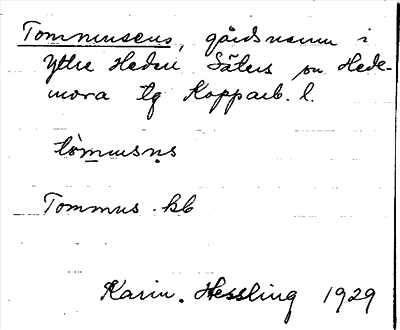 Tommusens, gårdsnamn i
Yttre Heden Säters sn Hede-
mora tg Kopparb. l.
tòmmusns
Tommus. kb
Karin. Hessling 1929